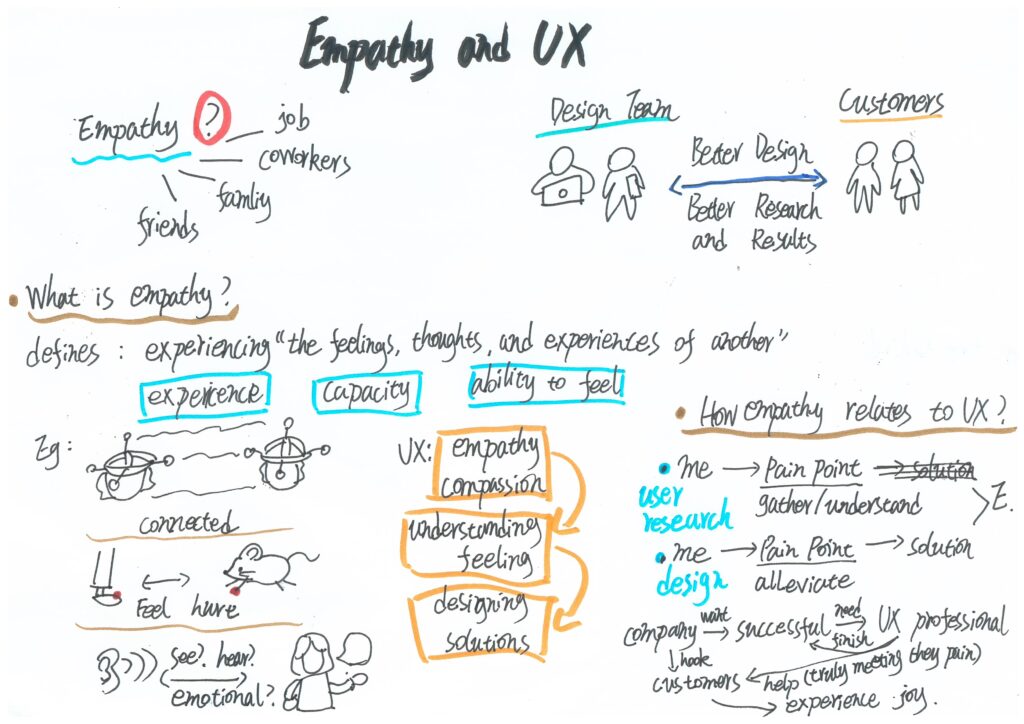 Empathy and UX
Empathy ?
job
coworkers
famliy
friends
Design Team
Customers
Better Design
Better Research
and Results
What is empathy?
defines : experiencing "the feelings, thoughts, and experientes of another"
experience
capacity
ability to feel
Eg :
connected
Feel hurt
see? hear?
emotional?
UX:
empathy
compassion
understanding
feeling
designing
solutions
How empathy relates to UX?
me → Pain Point → solution
user
research
gather/understand
E.
me → Pain Point → solution
design
alleviate
company want → successful need → UX professional
finish
hook
customers
help (truly meeting they pain)
experience joy.